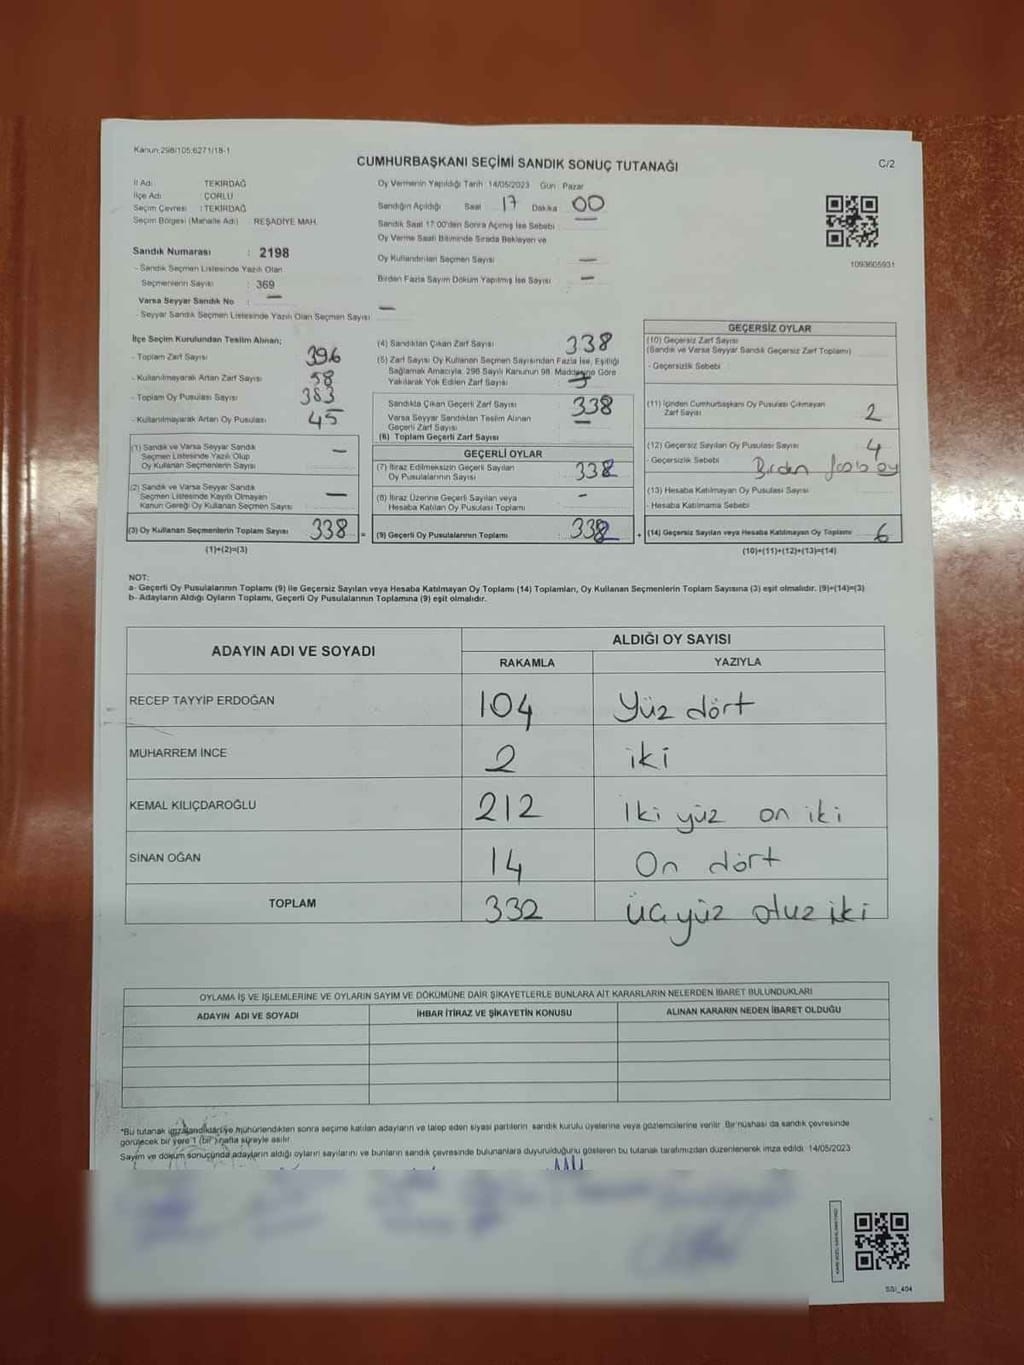 Kanun:298/105;6271/18-1
CUMHURBAŞKANI SEÇİMİ SANDIK SONUÇ TUTANAĞI
C/2
İl Adı : TEKİRDAĞ
İlçe Adı : ÇORLU
Seçim Çevresi : TEKİRDAĞ
Seçim Bölgesi (Mahalle Adı) : REŞADİYE MAH.
Oy Vermenin Yapıldığı Tarih :14/05/2023 Gün : Pazar
Sandığın Açıldığı Saat : 17 Dakika : 00
Sandık Saat 17:00'den Sonra Açılmış İse Sebebi
Oy Verme Saati Bitiminde Sırada Bekleyen ve
Oy Kullandırılan Seçmen Sayısı : —
Birden Fazla Sayım Döküm Yapılmış İse Sayısı : —
1093605931
Sandık Numarası : 2198
- Sandık Seçmen Listesinde Yazılı Olan
Seçmenlerin Sayısı : 369
Varsa Seyyar Sandık No : —
- Seyyar Sandık Seçmen Listesinde Yazılı Olan Seçmen Sayısı : —
İlçe Seçim Kurulundan Teslim Alınan;
- Toplam Zarf Sayısı : 396
- Kullanılmayarak Artan Zarf Sayısı : 58
- Toplam Oy Pusulası Sayısı : 383
- Kullanılmayarak Artan Oy Pusulası : 45
(1) Sandık ve Varsa Seyyar Sandık
Seçmen Listesinde Yazılı Olup
Oy Kullanan Seçmenlerin Sayısı : —
(2) Sandık ve Varsa Seyyar Sandık
Seçmen Listesinde Kayıtlı Olmayan
Kanun Gereği Oy Kullanan Seçmen Sayısı : —
(3) Oy Kullanan Seçmenlerin Toplam Sayısı : 338
(1)+(2)=(3)
(4) Sandıktan Çıkan Zarf Sayısı : 338
(5) Zarf Sayısı Oy Kullanan Seçmen Sayısından Fazla İse, Eşitliği
Sağlamak Amacıyla, 298 Sayılı Kanunun 98. Maddesine Göre
Yakılarak Yok Edilen Zarf Sayısı
Sandıkta Çıkan Geçerli Zarf Sayısı : 338
Varsa Seyyar Sandıktan Teslim Alınan
Geçerli Zarf Sayısı : —
(6) Toplam Geçerli Zarf Sayısı
GEÇERLİ OYLAR
(7) İtiraz Edilmeksizin Geçerli Sayılan
Oy Pusulalarının Sayısı : 332
(8) İtiraz Üzerine Geçerli Sayılan veya
Hesaba Katılan Oy Pusulası Toplamı : -
(9) Geçerli Oy Pusulalarının Toplamı : 332
GEÇERSİZ OYLAR
(10) Geçersiz Zarf Sayısı
(Sandık ve Varsa Seyyar Sandık Geçersiz Zarf Toplamı)
- Geçersizlik Sebebi
(11) İçinden Cumhurbaşkanı Oy Pusulası Çıkmayan
Zarf Sayısı : 2
(12) Geçersiz Sayılan Oy Pusulası Sayısı : 4
- Geçersizlik Sebebi : Birden fazla oy
(13) Hesaba Katılmayan Oy Pusulası Sayısı
- Hesaba Katılmama Sebebi
(14) Geçersiz Sayılan veya Hesaba Katılmayan Oy Toplamı : 6
(10)+(11)+(12)+(13)=(14)
NOT:
a- Geçerli Oy Pusulalarının Toplamı (9) ile Geçersiz Sayılan veya Hesaba Katılmayan Oy Toplamı (14) Toplamları, Oy Kullanan Seçmenlerin Toplam Sayısına (3) eşit olmalıdır. (9)+(14)=(3)
b- Adayların Aldığı Oyların Toplamı, Geçerli Oy Pusulalarının Toplamına (9) eşit olmalıdır.
ADAYIN ADI VE SOYADI
ALDIĞI OY SAYISI
RAKAMLA YAZIYLA
RECEP TAYYİP ERDOĞAN 104 Yüz dört
MUHARREM İNCE 2 iki
KEMAL KILIÇDAROĞLU 212 İki yüz on iki
SİNAN OĞAN 14 On dört
TOPLAM 332 üçyüz otuz iki
OYLAMA İŞ VE İŞLEMLERİNE VE OYLARIN SAYIM VE DÖKÜMÜNE DAİR ŞİKAYETLERLE BUNLARA AİT KARARLARIN NELERDEN İBARET BULUNDUKLARI
ADAYIN ADI VE SOYADI İHBAR İTİRAZ VE ŞİKAYETİN KONUSU ALINAN KARARIN NEDEN İBARET OLDUĞU
*Bu tutanak imzalandıktan ve mühürlendikten sonra seçime katılan adayların ve talep eden siyasi partilerin sandık kurulu üyelerine veya gözlemcilerine verilir. Bir nüshası da sandık çevresinde
görülecek bir yere 1 (bir) hafta süreyle asılır.
Sayım ve döküm sonucunda adayların aldığı oyların sayılarını ve bunların sandık çevresinde bulunanlara duyurulduğunu gösteren bu tutanak tarafımızdan düzenlenerek imza edildi. 14/05/2023
SSI_404